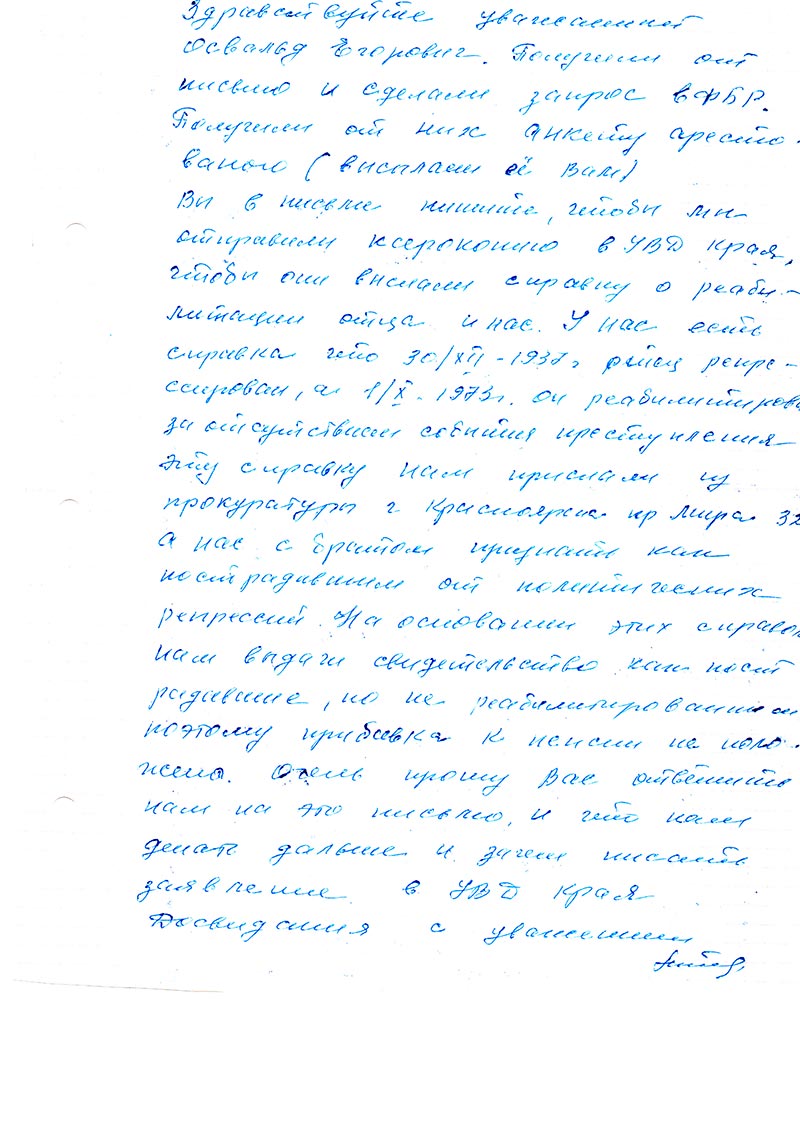 Здравствуйте уважаемый
Освальд Егорович. Получили от
письмо и сделали запрос в ФБР.
Получили от них анкету аресто-
ваного (высылаем её Вам)
Вы в письме пишите, чтобы мы
отправили ксерокопию в УВД края,
чтобы они выслали справку о реаби-
литации отца и нас. У нас есть
справка что 30/XII-1937г отец репре-
ссирован, а 1/X-1973г. он реабилитирова
за отсутствием события преступления
эту справку нам прислали из
прокуратуры г Красноярска пр Мира 32
А нас с братом признали как
пострадавшим от политических
репрессий. На основании этих справок
нам выдали свидетельство как пост
радавшие, но не реабилитированным
поэтому прибавка к пенсии не поло-
жена. Очень прошу Вас ответить
нам на это письмо, и что нам
делать дальше и зачем писать
заявление в УВД края
Досвидания с уважением